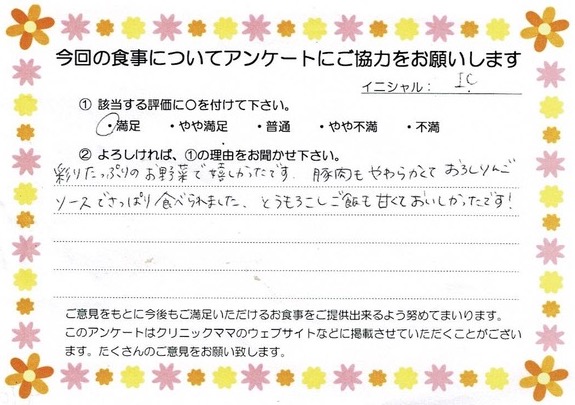 今回の食事についてアンケートにご協力をお願いします
イニシャル： I.C
① 該当する評価に○を付けて下さい。
・満足 ・やや満足 ・普通 ・やや不満 ・不満
② よろしければ、①の理由をお聞かせ下さい。
彩りたっぷりのお野菜で嬉しかったです。豚肉もやわらかくて おろしりんご
ソースでさっぱり食べられました、とうもろこしご飯も甘くておいしかったです！
ご意見をもとに今後もご満足いただけるお食事をご提供出来るよう努めてまいります。
このアンケートはクリニックママのウェブサイトなどに掲載させていただくことがござい
ます。たくさんのご意見をお願い致します。